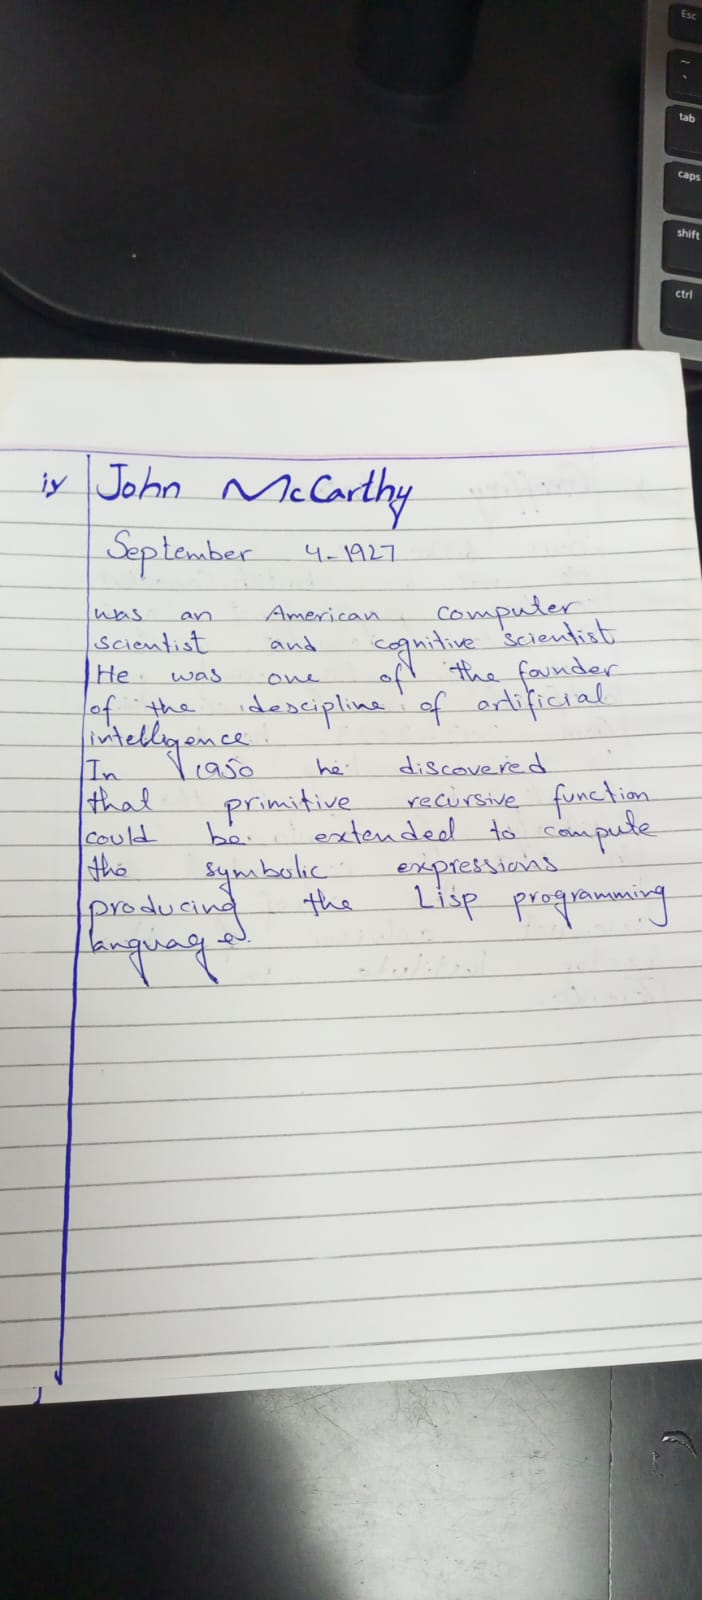 Esc
~
`
tab
caps
shift
ctrl
iv John McCarthy
September 4-1927
was an American computer
scientist and cognitive scientist
He was one of the founder
of the descipline of artificial
intelligence.
In 1950 he discovered
that primitive recursive function
could be extended to compute
the symbolic expressions
producing the Lisp programming
language.